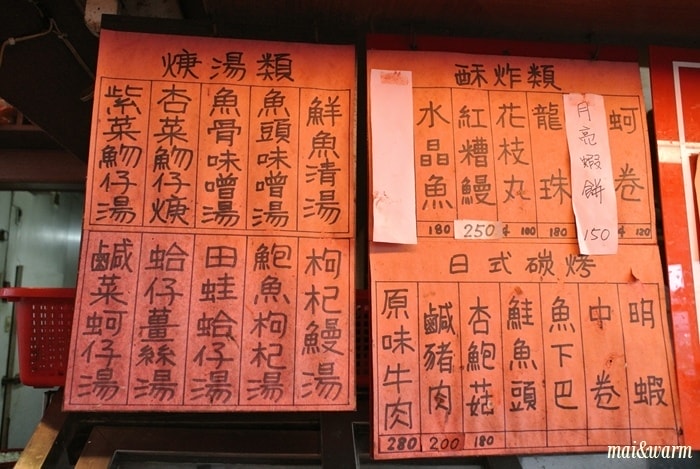 焿湯類
鮮魚清湯
魚頭味噌湯
魚骨味噌湯
杏菜魩仔焿
紫菜魩仔湯
枸杞鰻湯
鮑魚枸杞湯
田蛙蛤仔湯
蛤仔薑絲湯
鹹菜蚵仔湯
酥炸類
蚵卷 120
月亮蝦餅 150
龍珠 180
花枝丸 100
紅糟鰻 250
水晶魚 180
日式碳烤
明蝦
中卷
魚下巴
鮭魚頭
杏鮑菇 180
鹹豬肉 200
原味牛肉 280
mai&warm